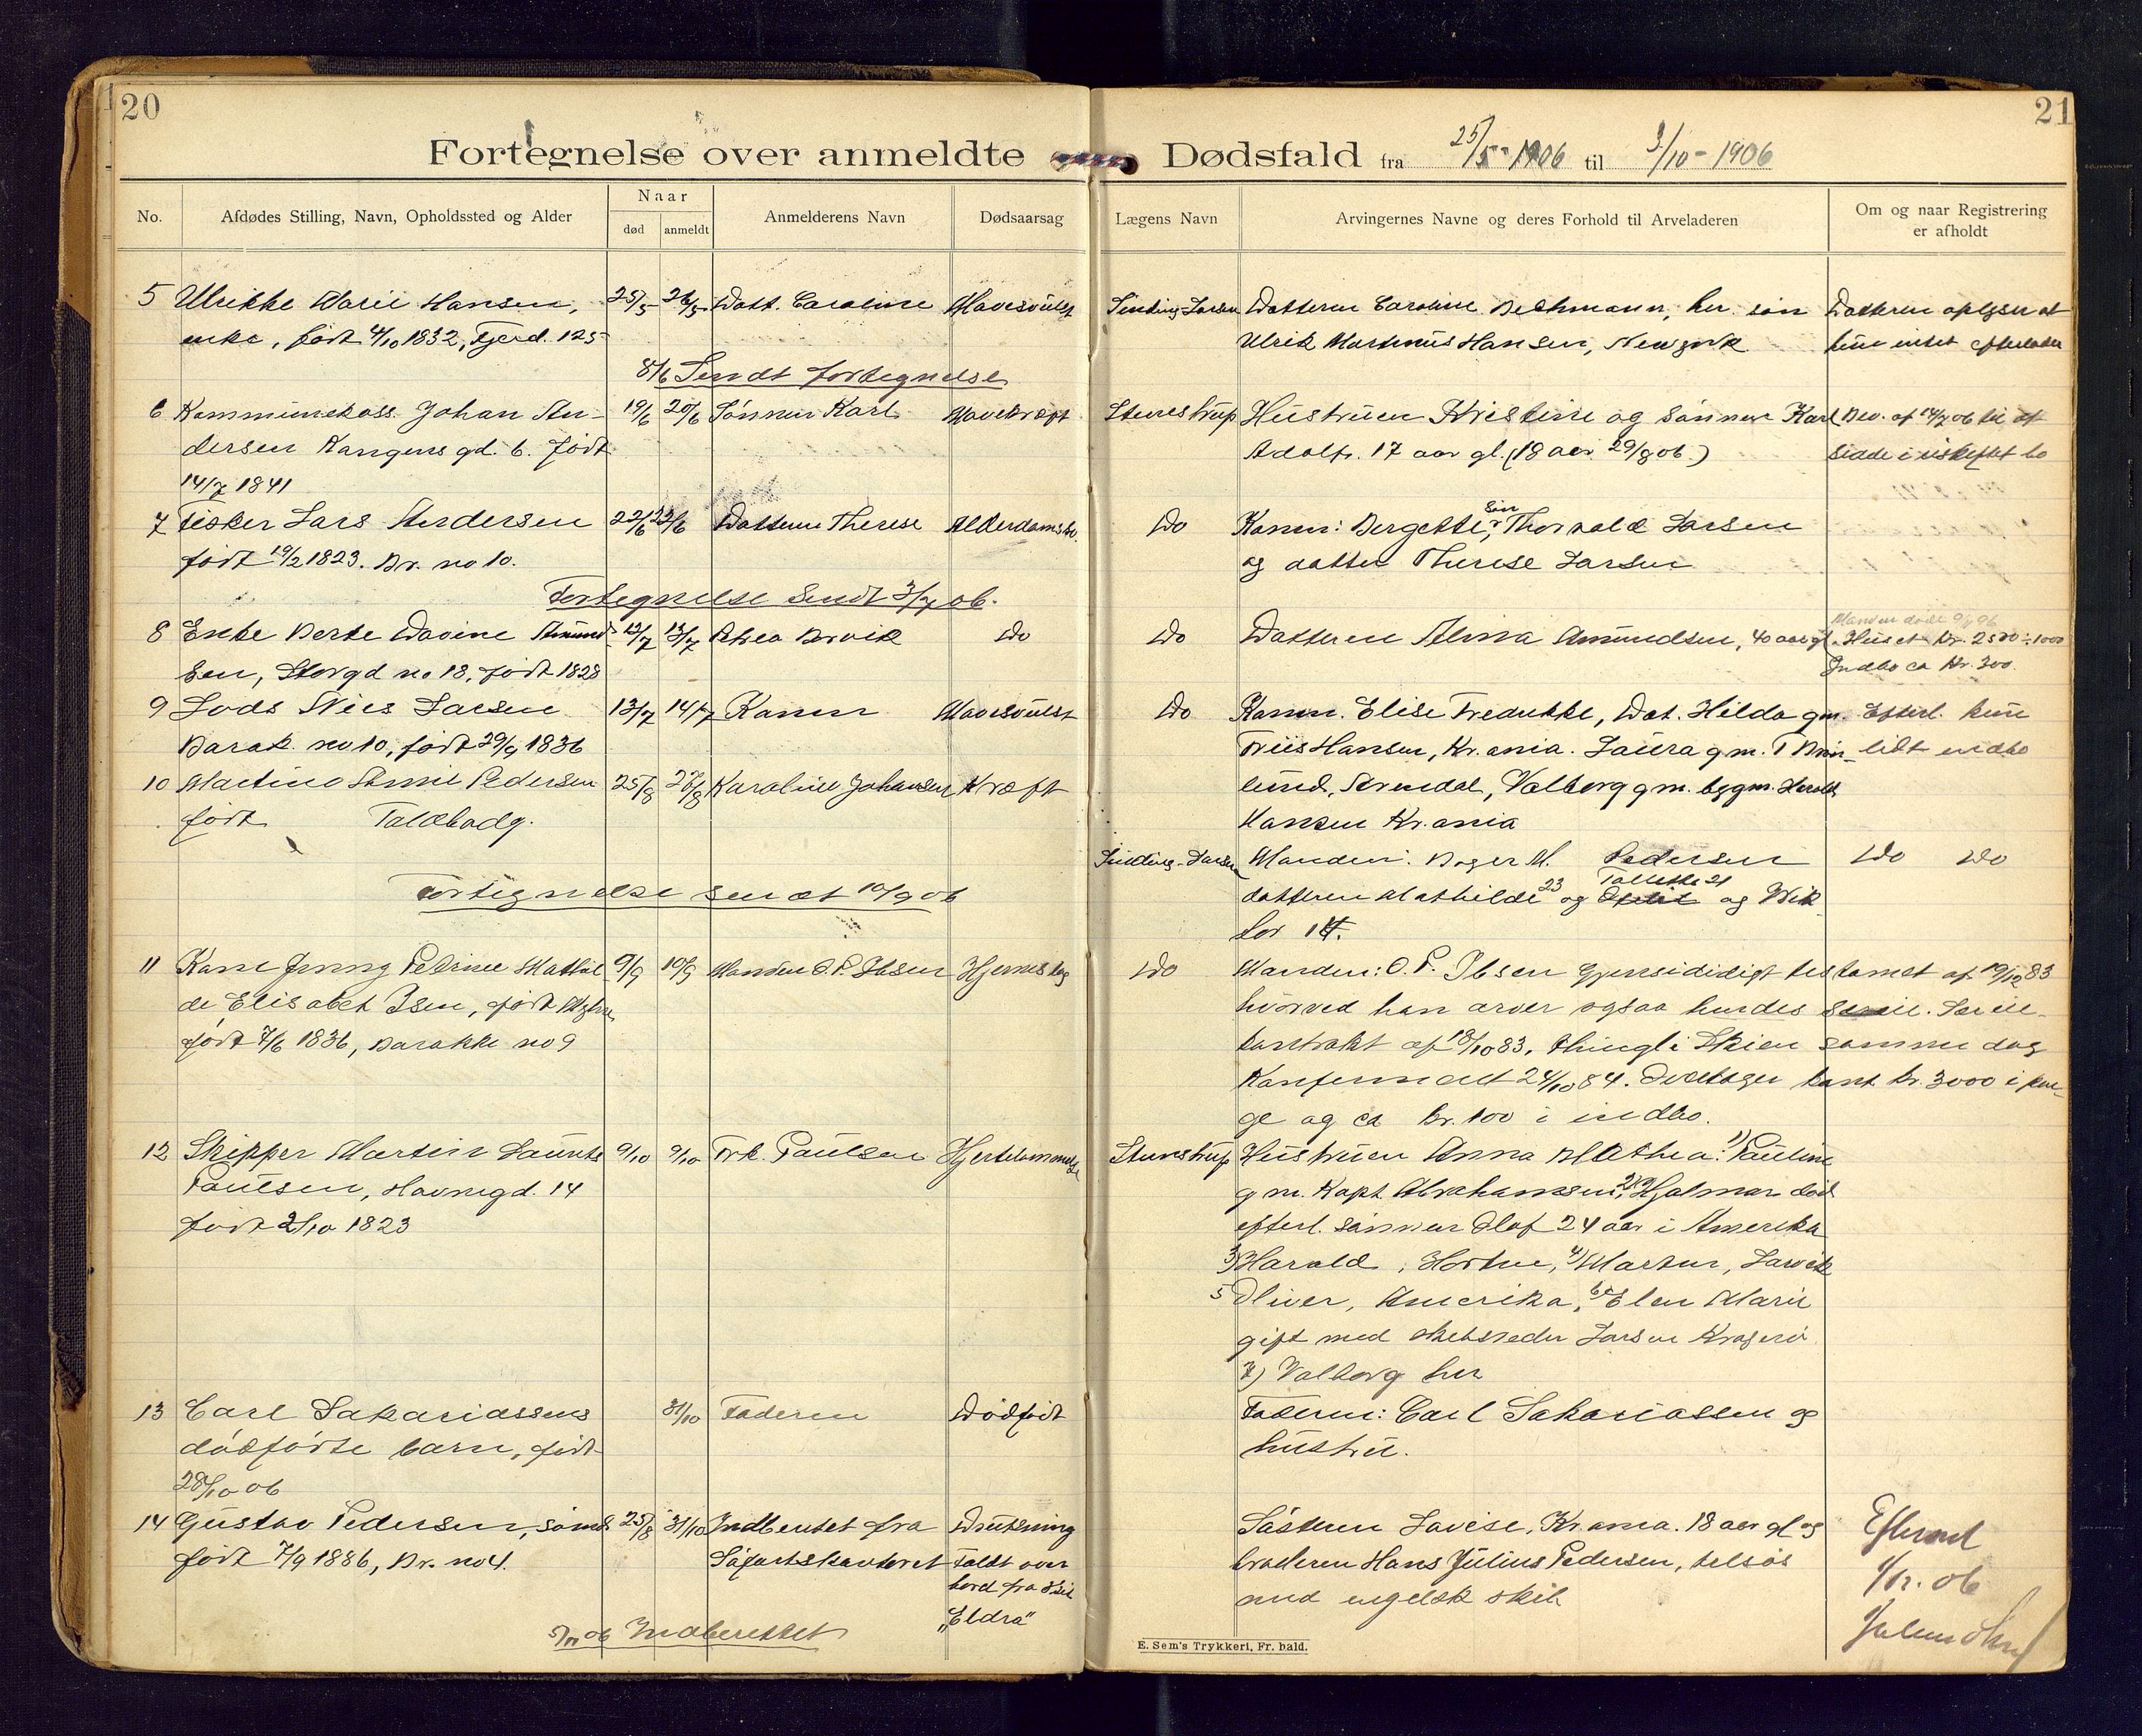 20
21
Fortegnelse over anmeldte Dødsfald fra 25/5-1906 til 3/10-1906
No.
Afdødes Stilling, Navn, Opholdssted og Alder
Naar
død
anmeldt
Anmelderens Navn
Dødsaarsag
Lægens Navn
Arvingernes Navne og deres Forhold til Arveladeren
Om og naar Registrering
er afholdt
5 Ulrikke Marie Hansen, 25/5 26/5 Datt. Caroline Mavesvulst Sinding-Larsen Datteren Caroline Bechmann, her. søn Datteren oplyser at
enke, født 4/10 1832, Fjerd. 125 Ulrik Martinius Hansen, Newyork hun intet efterlader
8/6 Sendt fortegnelse
6 Kommunekass. Johan An- 19/6 20/6 Sønnen Karl Mavekræft Stenestrup Hustruen Kristine og sønnen Karl Bev. af 14/7 06 til at
dersen Kongensgd. 6. født Adolf. 17 aar gl. (18 aar 29/8 06.) sidde i uskiftet bo
14/7 1841
7 Fisker Lars Andersen 22/6 23/6 Datteren Therese Alderdomssv. Do Konen: Bergette, Søn Thorvald Larsen
født 19/2 1823. Br. no 10. og datter Therese Larsen
Fortegnelse Sendt 3/7 06.
8 Enke Berte Davine Amund- 12/7 13/7 Petrea Borvik Do Do Datteren Alina Amundsen, 40 aar gl. Manden døde
sen, Storgd no 18, født 1828 Huset Kr. 2500 ÷ 1000
Indbo ca Kr. 300.
9 Lods Niels Larsen 13/7 14/7 Konen Mavesvulst Do Konen. Elise Fredrikke, Dat. Hilda gm. Efterl. kun
Barak. no 10, født 29/9 1836 Friis Hansen, Kr.ania. Laura gm. T Brin- lidt indbo
lund, Arendal, Valborg gm. bygm. Harald
Hansen Kr.ania
10 Martine Pedersen 25/8 28/8 Karoline Johansen Kræft Sinding-Larsen Manden: M. Pedersen Do Do
født Toldbodg. datteren Mathilde 23 og Tollette 21 og Vik-
tor 14.
Fortegnelse sendt 10/9 06
11 Kone Jenny Petrine Mathil- 9/9 10/9 Manden O. P. Ibsen Hjerneslag Do Manden: O. P. Ibsen Gjensididigt testamet af 19/12 83
de Elisabet Isen, født hvorved han arver ogsaa hendes
født 7/6 1836, Barakke no 9 kontrakt af 18/10 83, thingl. i Skien samme dag
Konfirmert 24/10 84. Deeltager kont. kr. 3000 i pen-
ge og ca kr. 100 i indbo.
12 Skipper Martin Laurits 9/10 9/10 Frk. Paulsen Hjertelammelse Stenestrup Hustruen Anna Mathea: 1) Pauline
Paulsen, Havnegd. 14 gm. Kapt. Abrahamsen, 2) Hjalmar død
født 2/10 1823 efterl. sønnen Olaf 24 aar i Amerika
3) Harald, Horten, 4) Martin, Larvik
5 Oliver, Amerika, 6) Elen Marie
gift med skibsreder Larsen Kragerø
7) Valborg her
13 Carl Sakariassens 31/10 Faderen Dødfødt Faderen: Carl Sakariassen og
dødfødte barn, født hustru.
28/10 06
14 Gustav Pedersen, sømd 25/8 31/10 Indberetet fra Drukning Søsteren Lovise, Kr.ania. 18 aar gl og
født 7/9 1886, Br. no 4. Søfartskontoret Faldt over broderen Hans Julius Pedersen, tilsøs
bord fra Skib med engelsk skib
„Eldra"
5/11 06 Indberettet
Efterset
06
E. Sem's Trykkeri, Fr. hald.